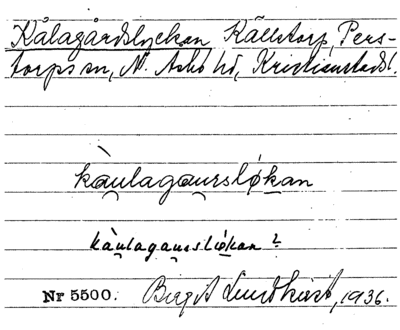 Kålagårdslyckan Källstorp, Pers-
torps sn, N. Åsbo hd, Kristianstads l.
kàu̯lagau̯rsløkan
kàu̯lagau̯rsløkan?
Nr 5500. Birgit Lundkvist, 1936.